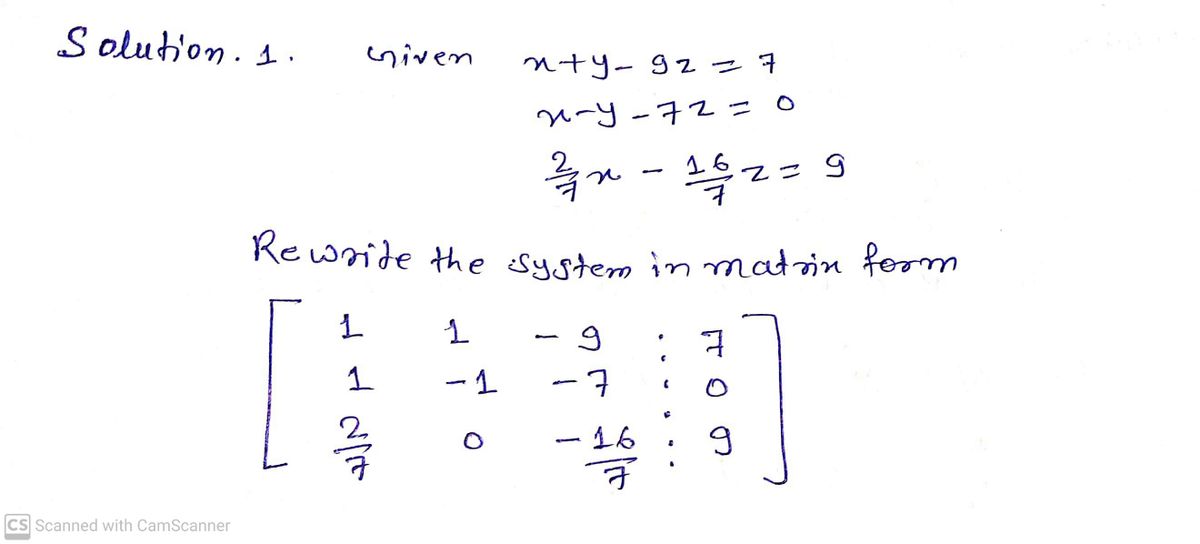 Solution. 1. Given x+y-9z=7
x-y-7z=0
2/7 x - 16/7 z = 9
Rewrite the system in matrix form
[ 1 1 -9 : 7
1 -1 -7 : 0
2/7 0 -16/7 : 9 ]
CS Scanned with CamScanner